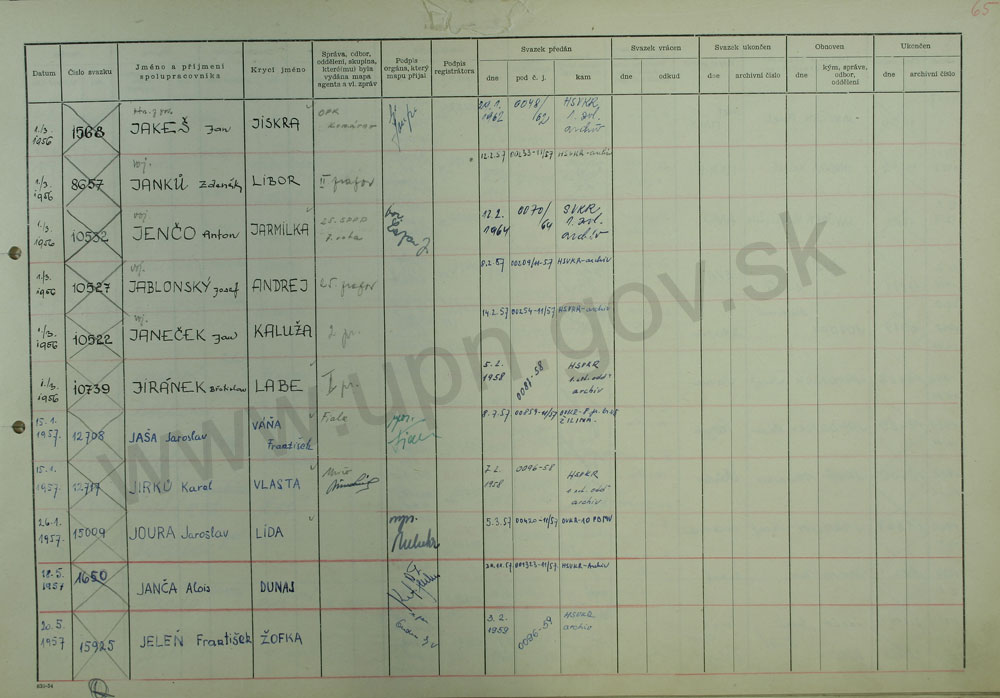 65
Datum
Číslo svazku
Jméno a příjmení
spolupracovníka
Krycí jméno
Správa, odbor,
oddělení, skupina,
které(mu) byla
vydána mapa
agenta a vl. zpráv
Podpis
orgána, který
mapu přijal
Podpis
registrátora
Svazek předán
dne
pod č. j.
kam
Svazek vrácen
dne
odkud
Svazek ukončen
dne
archivní číslo
Obnoven
dne
kým, správa,
odbor,
oddělení
Ukončen
dne
archivní číslo
1./3.
1956
1568
JAKEŠ Jan
JISKRA
20.1.
1962
0048/
62
HSVKR
1. zvl.
archiv
1./3.
1956
8657
voj.
JANKŮ Zdeněk
LIBOR
II prapor
12.2.57
HSVKR-archiv
1./3.
1956
10532
voj.
JENČO Anton
JARMILKA
7. rota
12.2.
1964
0070/
64
SVKR
1. zvl.
archiv
1./3.
1956
10527
voj.
JABLONSKÝ Josef
ANDREJ
25 prapor
8.2.57
00209/11-57
HSVKR-archiv
1./3.
1956
10522
voj.
JANEČEK Jan
KALUŽA
2 pr.
14.2.57
00254-11/57
HSVKR-archiv
1./3.
1956
10739
JIRÁNEK Břetislav
LABE
I. pr.
5.2.
1958
0087-58
HSVKR
archiv
15.1.
1957.
12708
JAŠA Jaroslav
VÁŇA
František
Fiala
8.7.57
00859-11/57
ŽILINA.
15.1.
1957.
12717
JIRKŮ Karel
VLASTA
7.2.
1958
0096-58
HSVKR
archiv
26.1.
1957.
15009
JOURA Jaroslav
LÍDA
npr.
5.3.57
00420-11/57
OVKR-10 PDPVV
18.5.
1957
1650
JANČA Alois
DUNAJ
001323-11/57
HSVKR-Archiv
20.5.
1957
15925
JELEŇ František
ŽOFKA
3.2.
1959
0096-59
HSVKR
archiv
www.upn.gov.sk